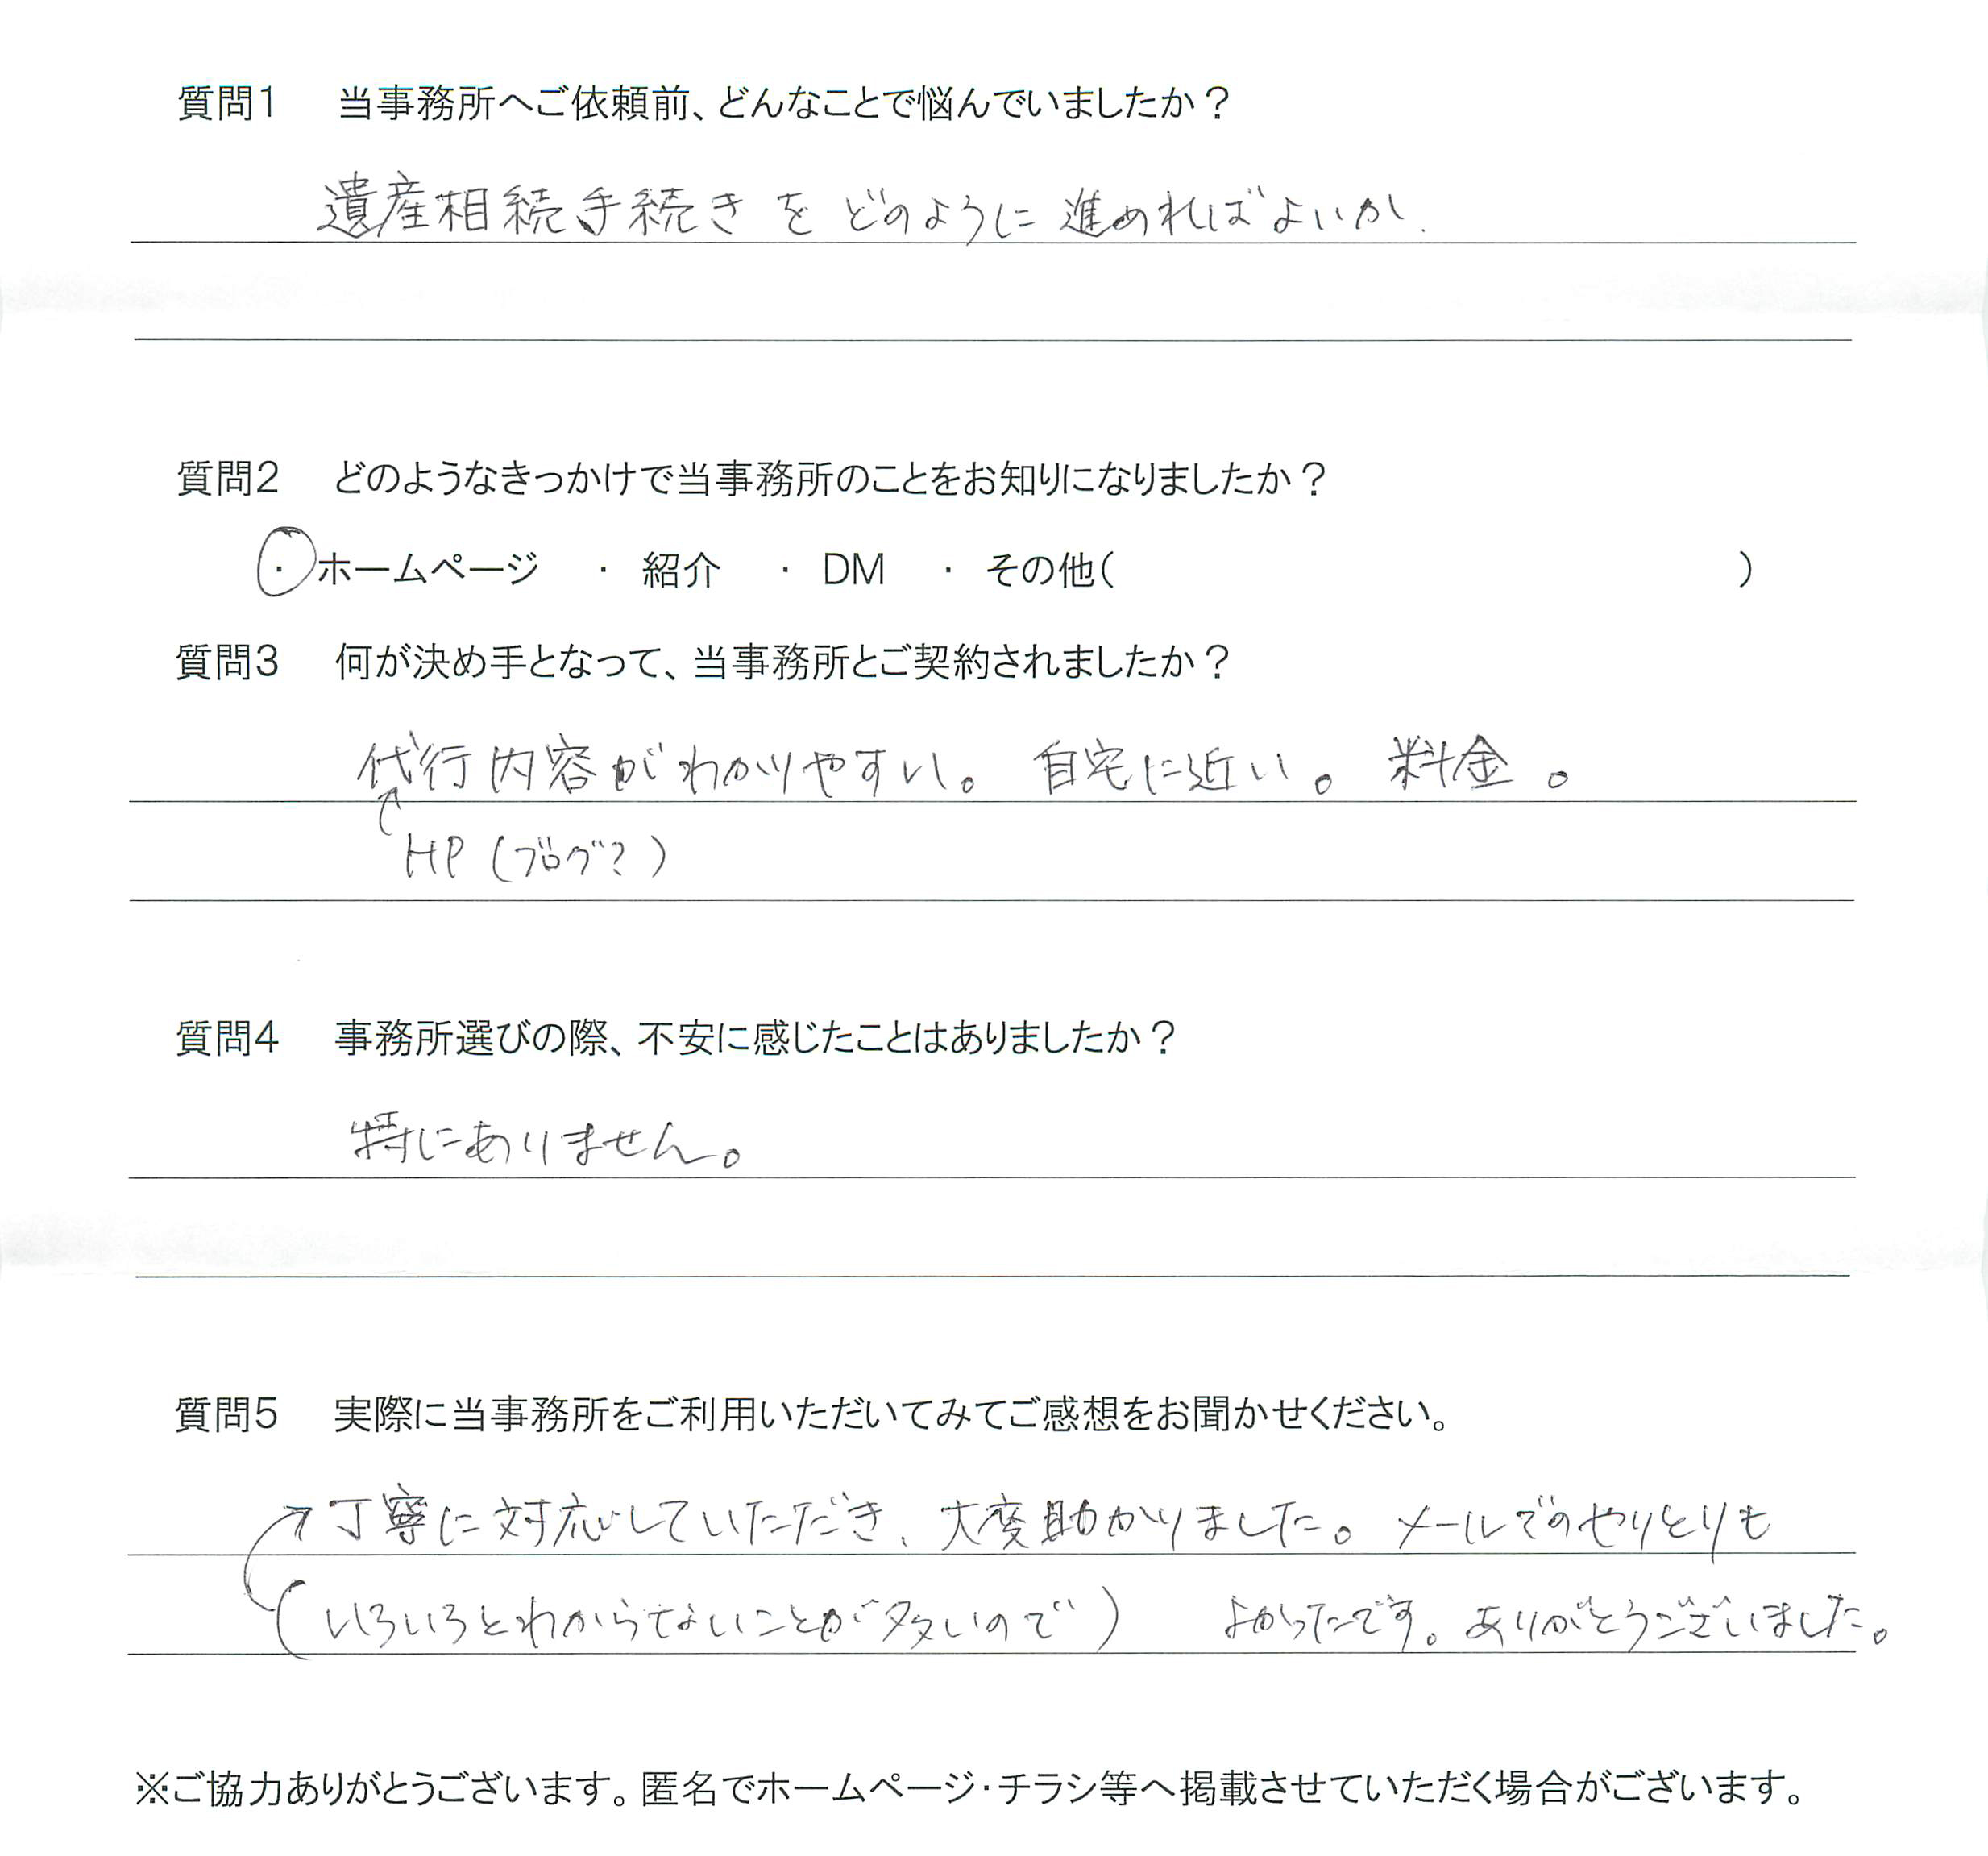 質問1　当事務所へご依頼前、どんなことで悩んでいましたか？
遺産相続手続きをどのように進めればよいか.
質問2　どのようなきっかけで当事務所のことをお知りになりましたか？
・ホームページ　・ 紹介　・ DM　・ その他(　)
質問3　何が決め手となって、当事務所とご契約されましたか？
代行内容がわかりやすい。自宅に近い。料金。
HP (ブログ？)
質問4　事務所選びの際、不安に感じたことはありましたか？
特にありません。
質問5　実際に当事務所をご利用いただいてみてご感想をお聞かせください。
丁寧に対応していただき、大変助かりました。メールでのやりとりも
(いろいろとわからないことが多いので)　よかったです。ありがとうございました。
※ご協力ありがとうございます。匿名でホームページ・チラシ等へ掲載させていただく場合がございます。